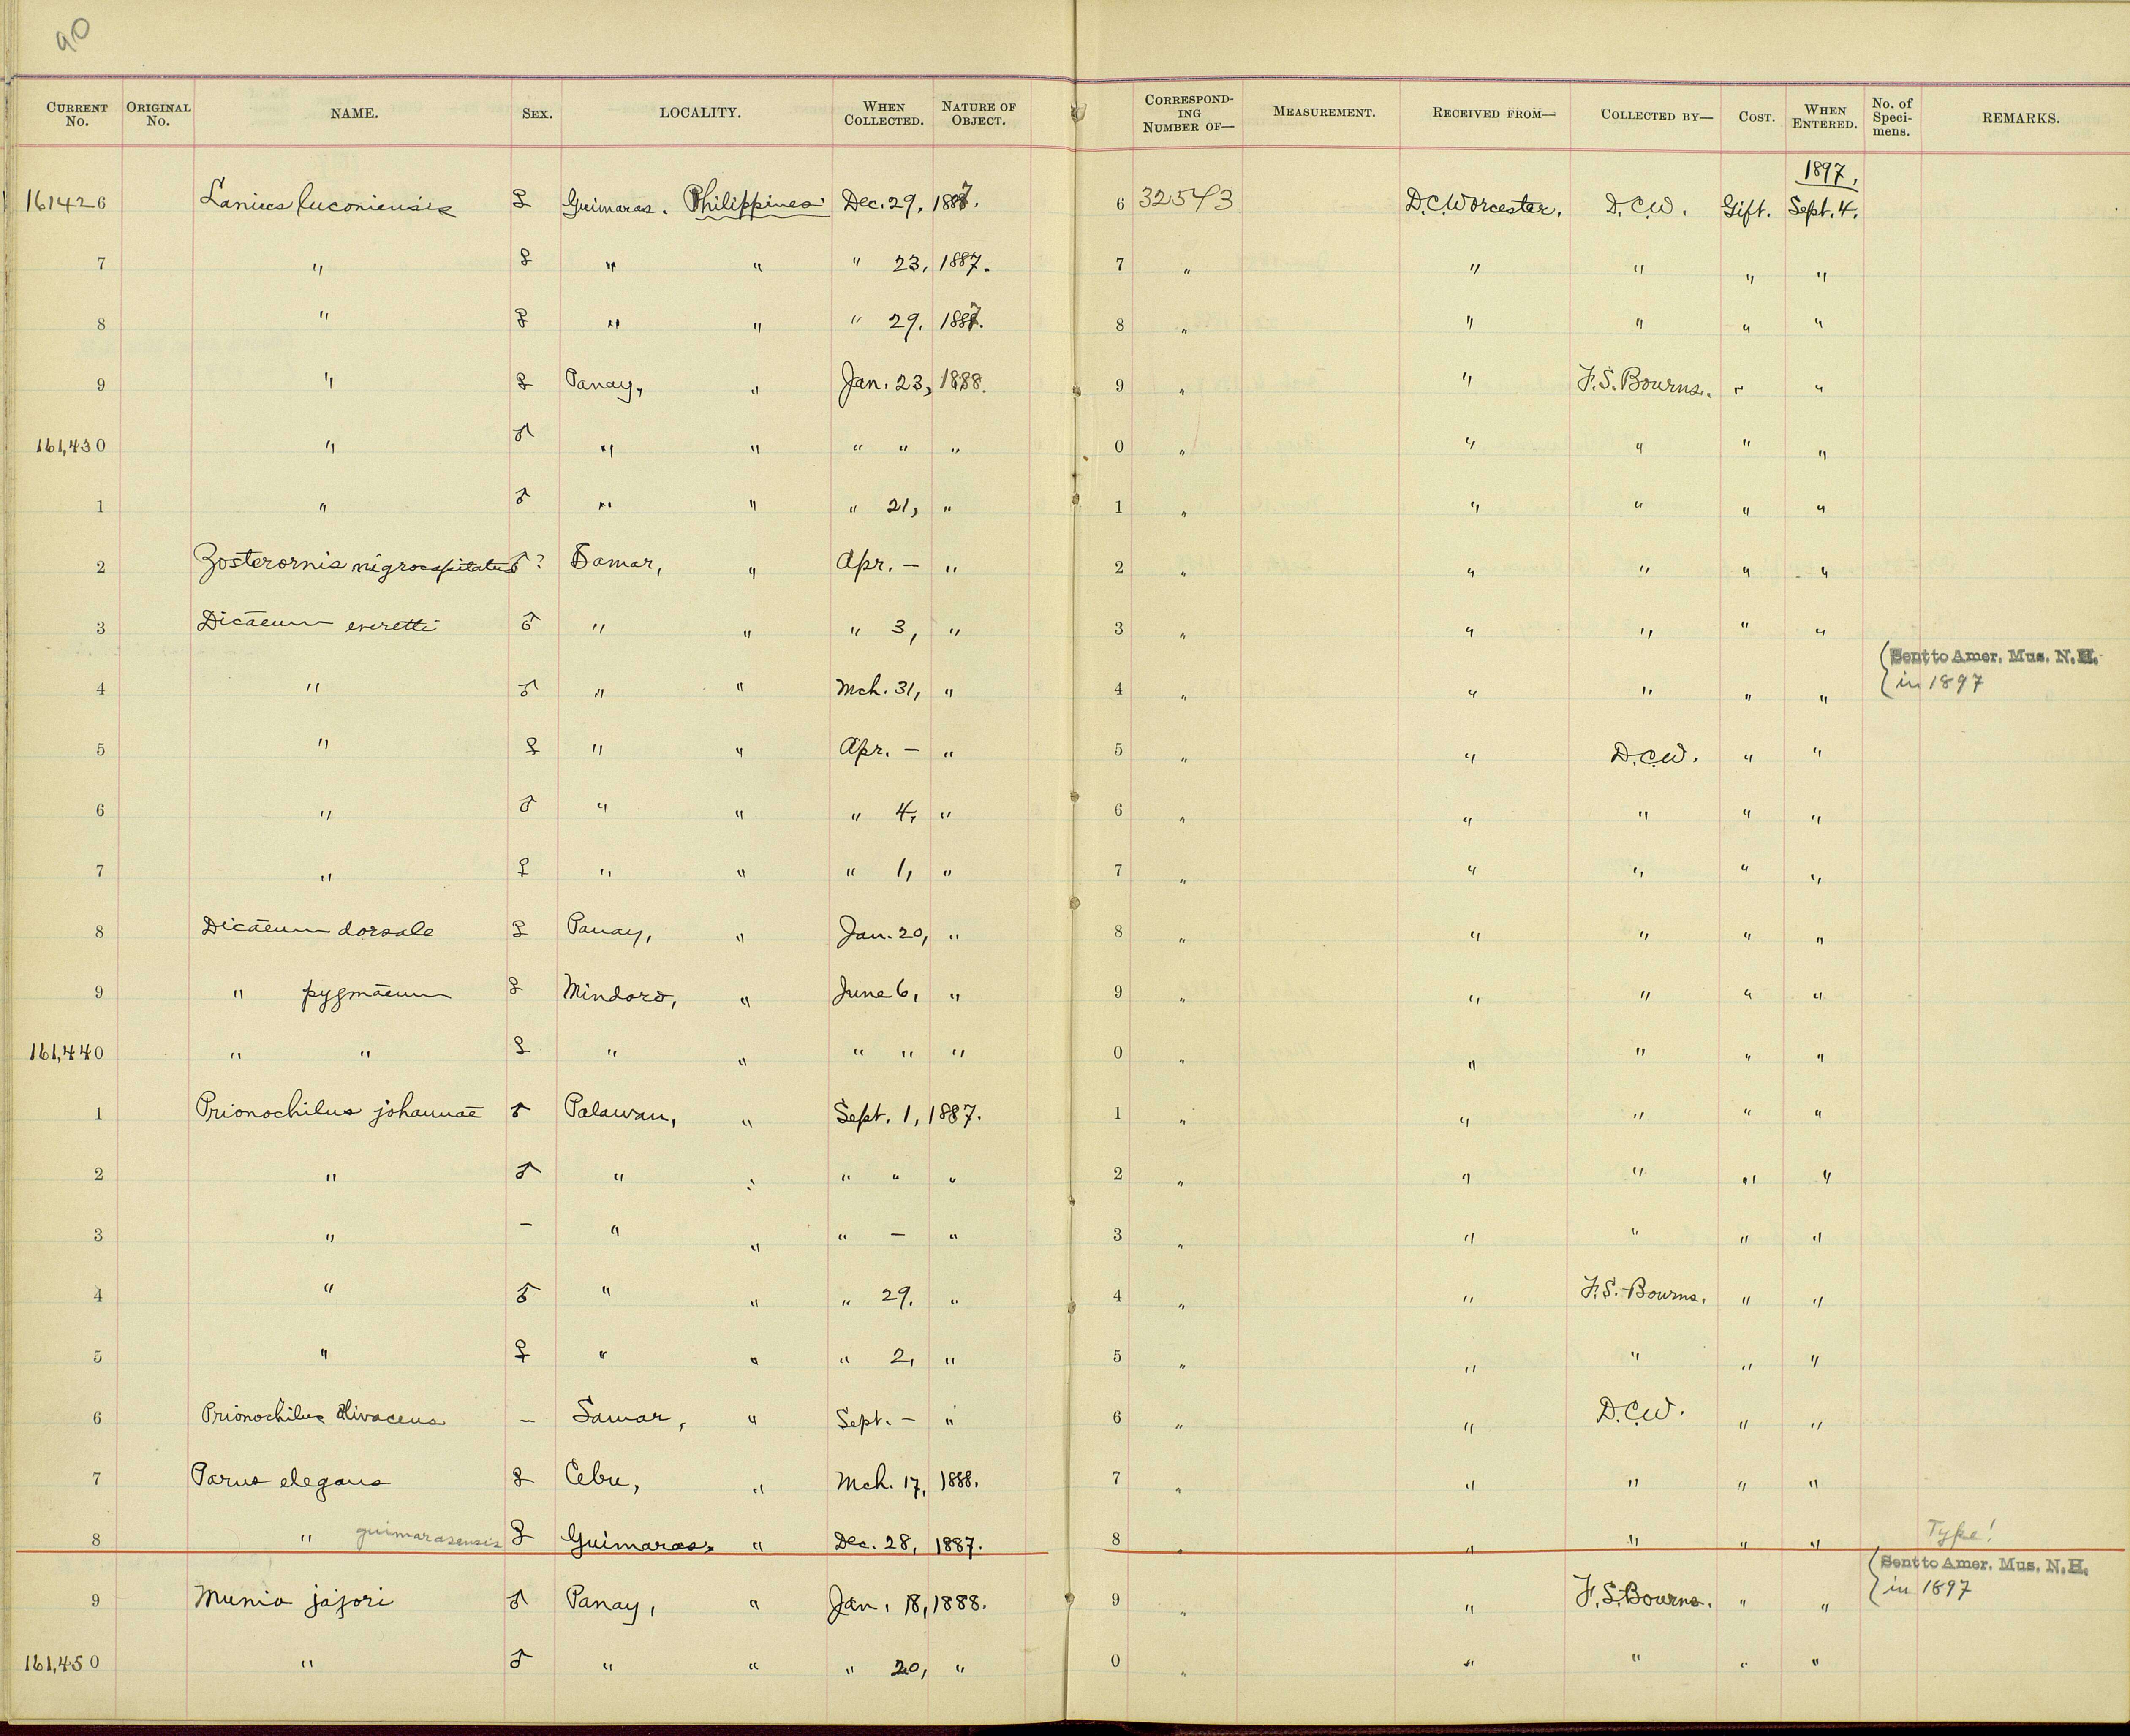 90
CURRENT No. ORIGINAL No. NAME. SEX. LOCALITY. WHEN COLLECTED. NATURE OF OBJECT. CORRESPOND-ING NUMBER OF— MEASUREMENT. RECEIVED FROM— COLLECTED BY— COST. WHEN ENTERED. No. of Speci-mens. REMARKS.
1897.
161426 Lanius luconiensis ♀ Guimaras. Philippines Dec. 29, 1887. 6 32543 D.C.Worcester. D.C.W. Gift. Sept. 4.
7 " ♀ " " " 23, 1887. 7 " " " " "
8 " ♀ " " " 29, 1887. 8 " " " " "
9 " ♀ Panay, " Jan. 23, 1888. 9 " " F.S. Bourns. " "
161,430 " ♂ " " " " " 0 " " " " "
1 " ♂ " " " 21, " 1 " " " " "
2 Zosterornis nigrocapitatus ♂? Samar, " Apr. — " 2 " " " " "
3 Dicaeum everetti ♂ " " " 3, " 3 " " " " "
4 " ♂ " " Mch. 31, " 4 " " " " " { Sent to Amer. Mus. N.H. in 1897
5 " ♀ " " Apr. — " 5 " " D.C.W. " "
6 " ♂ " " " 4, " 6 " " " " "
7 " ♀ " " " 1, " 7 " " " " "
8 Dicaeum dorsale ♀ Panay, " Jan. 20, " 8 " " " " "
9 " pygmaeum ♀ Mindoro, " June 6, " 9 " " " " "
161,440 " " ♀ " " " " " 0 " " " " "
1 Prionochilus johannae ♂ Palawan, " Sept. 1, 1887. 1 " " " " "
2 " ♂ " " " " " 2 " " " " "
3 " — " " " — " 3 " " " " "
4 " ♂ " " " 29. " 4 " " F.S. Bourns. " "
5 " ♀ " " " 2, " 5 " " " " "
6 Prionochilus olivaceus — Samar, " Sept. — " 6 " " D.C.W. " "
7 Parus elegans ♀ Cebu, " Mch. 17, 1888. 7 " " " " "
8 " guimarasensis ♀ Guimaras, " Dec. 28, 1887. 8 " " " " " Type!
9 Munia jajori ♂ Panay, " Jan. 18, 1888. 9 " " F.S. Bourns. " " { Sent to Amer. Mus. N.H. in 1897
161,450 " ♂ " " " 20, " 0 " " " " "